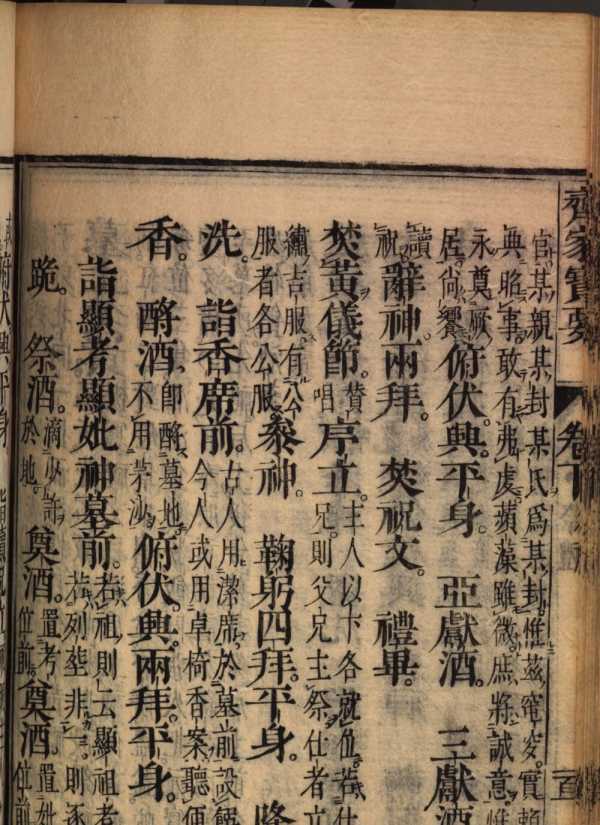 齊家寶要 卷下
官某親某封某氏爲某封惟茲窀穸實賴
典昭事敢有弗虔蘋藻雖微庶將誠意惟
永奠厥
居尚饗俯伏興平身 亞獻酒 三獻酒
讀
祝辭神兩拜 焚祝文 禮畢
焚黃儀節 贊唱 序立 主人以下各就位若仕
兄則父兄主祭仕者立
繡吉服有公
服者各公服參神 鞠躬四拜平身 降
洗 詣香席前 古人用潔席於墓前設饌
今人或用卓椅香案聽便
香 酹酒 即酹墓地
不用茅沙 俯伏興兩拜平身
詣顯考顯妣神墓前 若祖則云顯祖考
若列塋非一則逐
跪 祭酒 滴少許
於地 奠酒 置考
位前 奠酒 置妣
位前
俯伏興平身